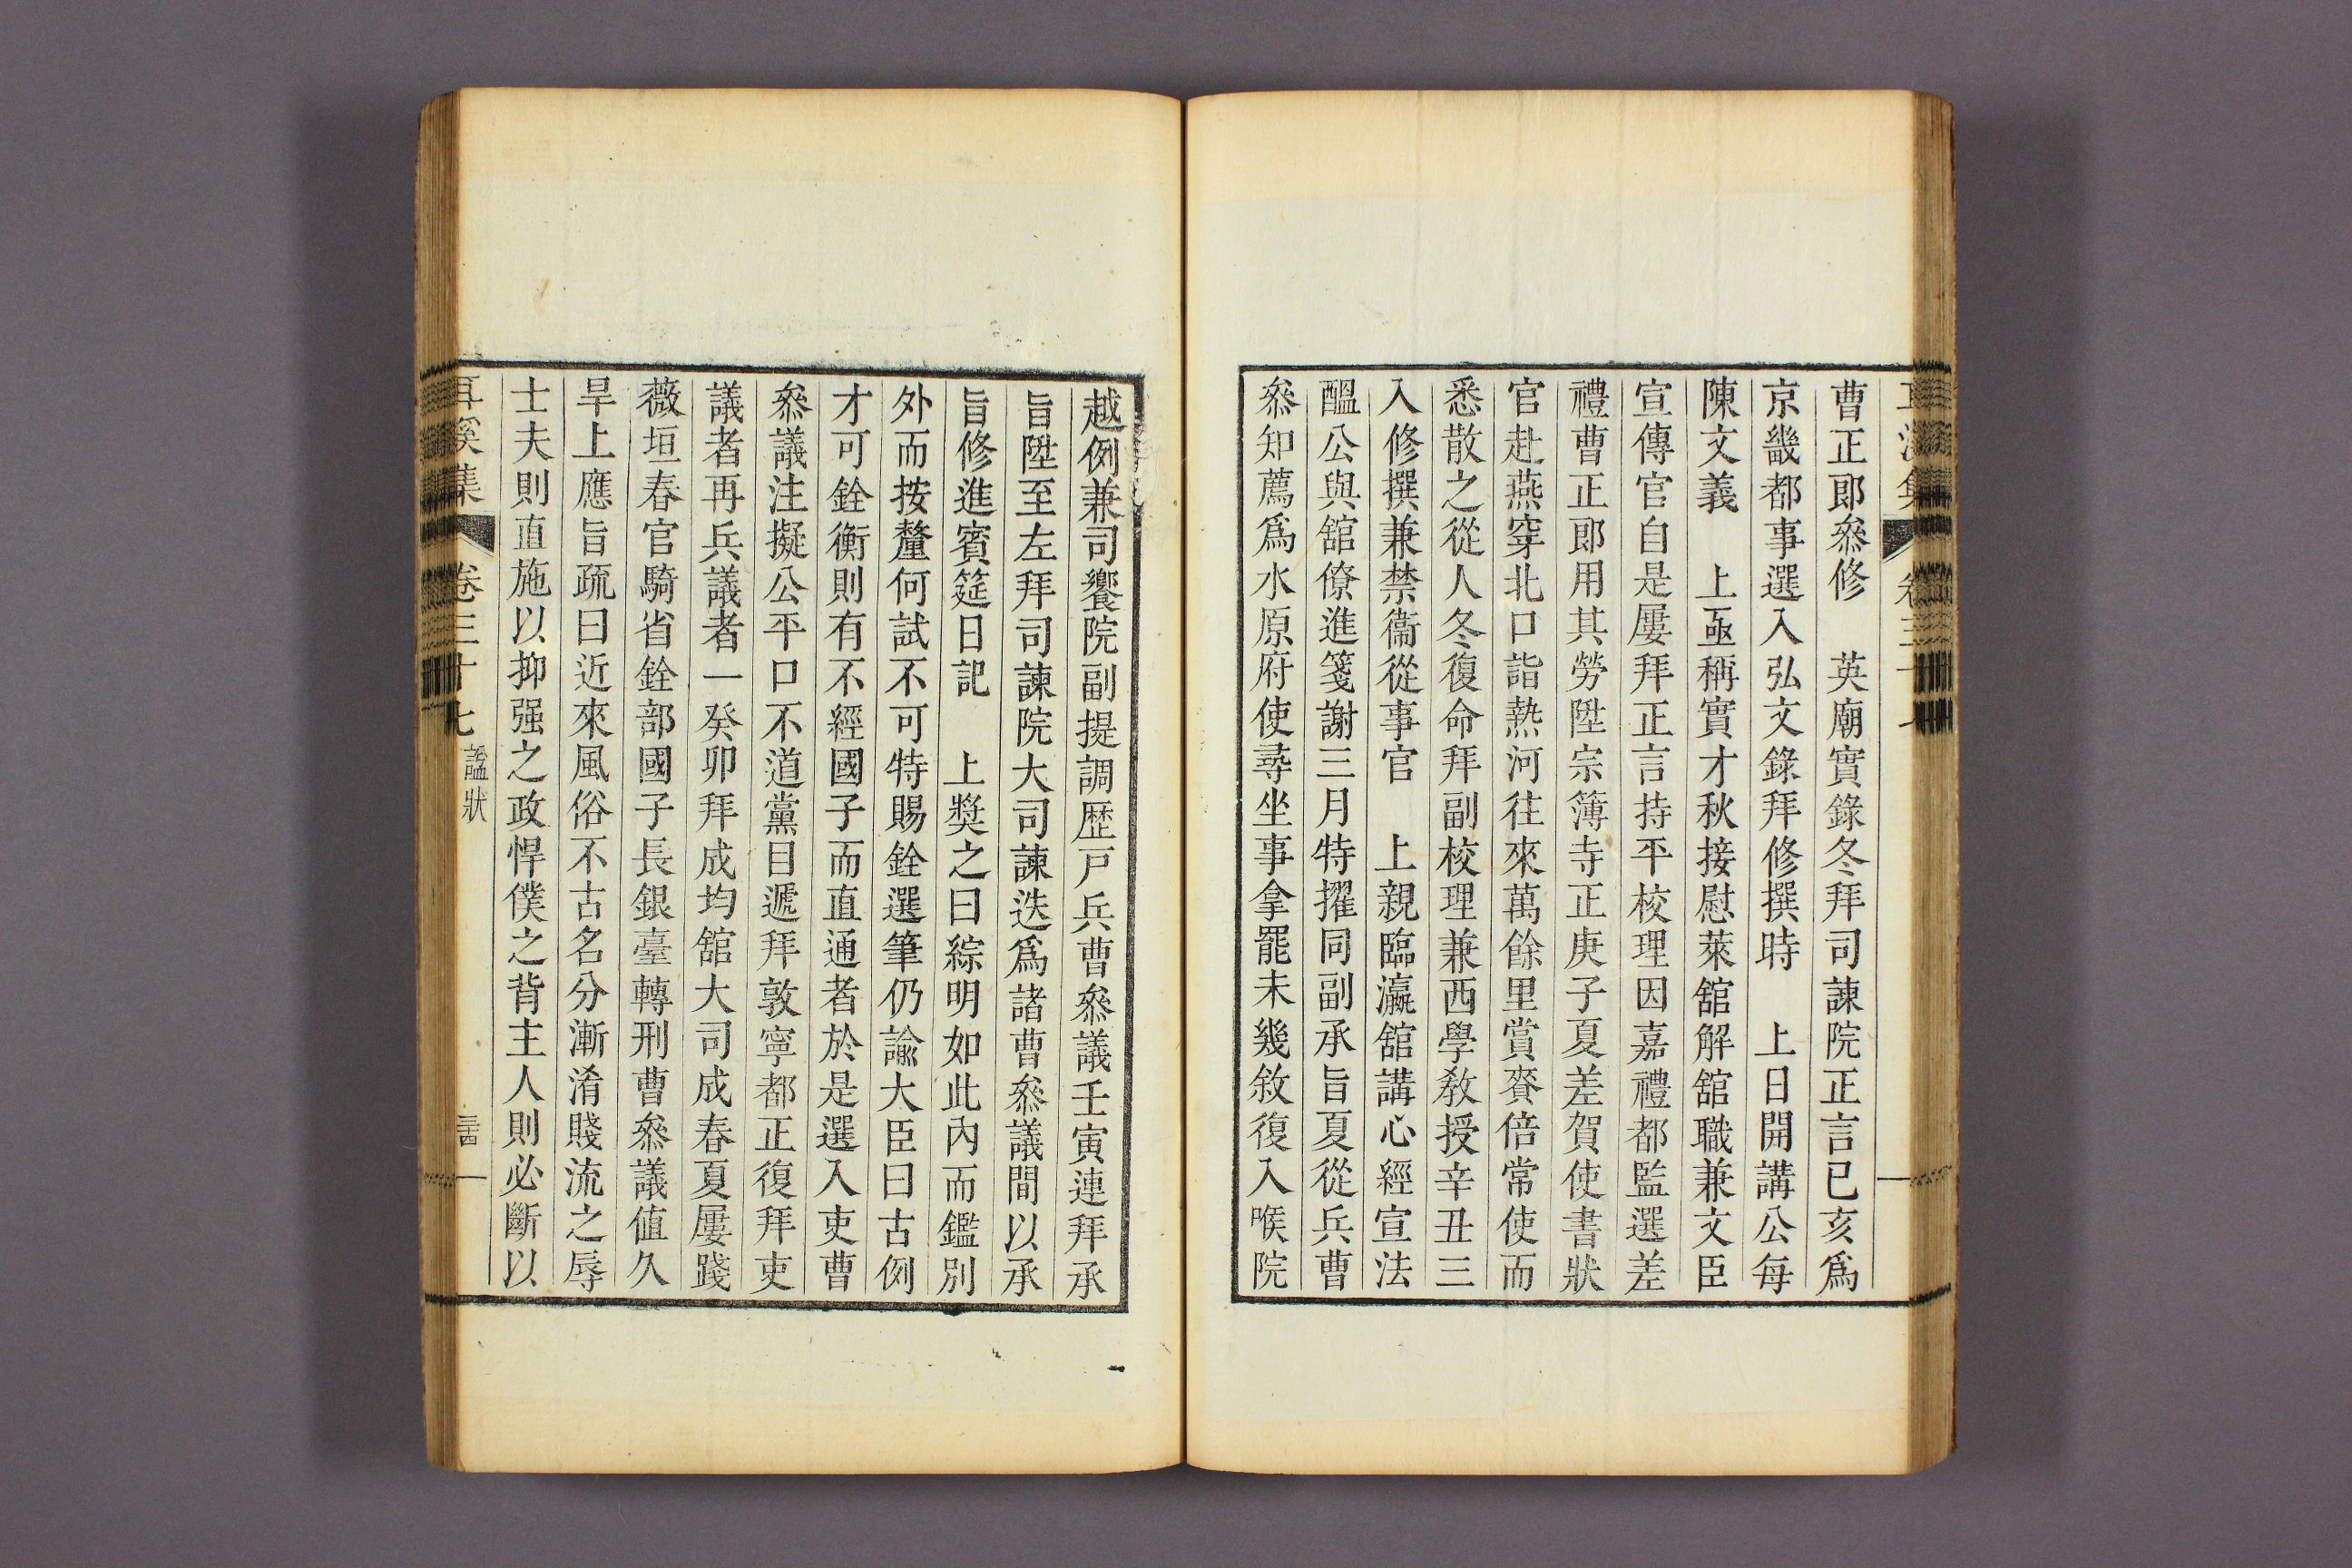 曹正郎叅修　英廟實錄冬拜司諫院正言已亥爲
京畿都事選入弘文錄拜修撰時　上日開講公每
陳文義　上亟稱實才秋接慰萊舘解舘職兼文臣
宣傳官自是屢拜正言持平校理因嘉禮都監選差
禮曹正郎用其勞陞宗簿寺正庚子夏差賀使書狀
官赴燕穿北口詣熱河往來萬餘里賞賚倍常使而
悉散之從人冬復命拜副校理兼西學敎授辛丑三
入修撰兼禁衞從事官　上親臨瀛舘講心經宣法
醞公與舘僚進箋謝三月特擢同副承旨夏從兵曹
叅知薦爲水原府使尋坐事拿罷未幾敘復入喉院
越例兼司饔院副提調歴戸兵曹叅議壬寅連拜承
旨陞至左拜司諫院大司諫迭爲諸曹叅議間以承
旨修進賓筵日記　上奬之曰綜明如此內而鑑別
外而按釐何試不可特賜銓選筆仍諭大臣曰古例
才可銓衡則有不經國子而直通者於是選入吏曹
叅議注擬公平口不道黨目遞拜敦寧都正復拜吏
議者再兵議者一癸卯拜成均舘大司成春夏屢踐
薇垣春官騎省銓部國子長銀臺轉刑曹叅議值久
旱上應旨疏曰近來風俗不古名分漸淆賤流之辱
士夫則直施以抑强之政悍僕之背主人則必斷以
耳溪集　卷三十七　諡狀　三十四